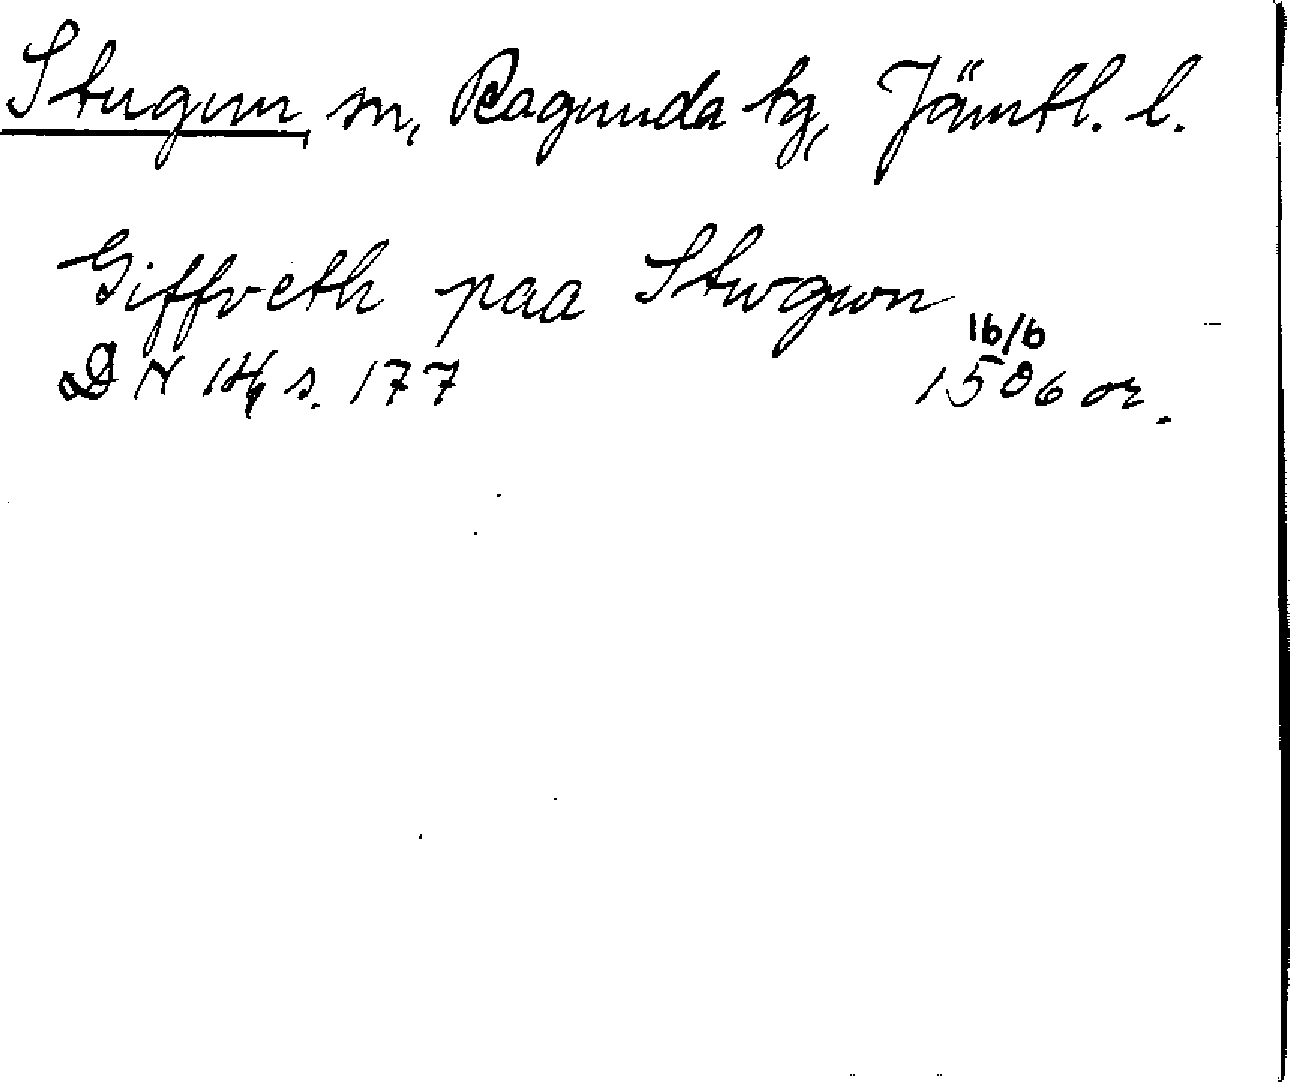 Stugun, sn, Ragunda tg, Jämtl. l.
Giffreth paa Stwgwn
16/6
DN 14, s. 177 1506 or.